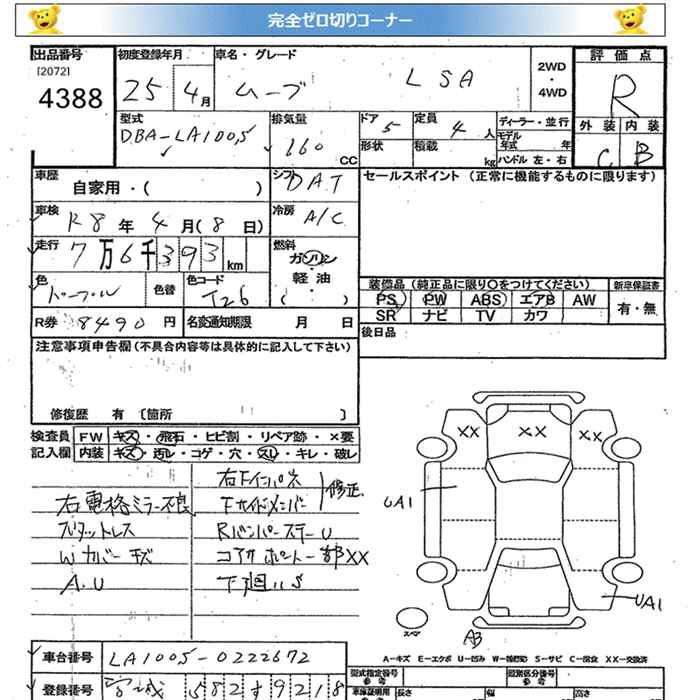 完全ゼロ切りコーナー
出品番号 初度登録年月 車名・グレード 評価点
[2072] 4388 25 4月 ムーブ L SA 2WD・4WD R
型式 排気量 ドア 定員 ディーラー・並行 外装 内装
DBA-LA100S 660 CC 5 4人 モデル年式 年 C B
形状 積載 kg ハンドル 左・右
車歴 自家用・( ) シフト DAT セールスポイント(正常に機能するものに限ります)
車検 R8年4月(8日) 冷房 A/C
走行 7万6千393km 燃料 ガソリン・軽油・( )
色 パープル 色替 色コード T26 装備品(純正品に限り〇をつけてください) 新車保証書
PS PW ABS エアB AW 有・無
SR ナビ TV カワ
R券 8490円 名変通知期限 月 日 後日品
注意事項申告欄(不具合内容等は具体的に記入して下さい)
修復歴 有 〔箇所 〕
検査員記入欄 FW キズ・飛石・ヒビ割・リペア跡・×要
内装 キズ・汚レ・コゲ・穴・スレ・キレ・破レ
右電格ミラー不良
スタットレス
Wカバーキズ
A.U
右Fインパネ
Fサイドメンバー 修正
RバンパーステーU
コアサポート一部XX
下廻りS
XX XX XX
UA1
UA1
スペア
A3
A-キズ E-エクボ U-凹み W-補修跡 S-サビ C-腐食 XX-交換済
車台番号 LA100S-0222672 型式指定番号 類別区分番号
登録番号 宮城 582 す 9218 車庫証明用参考 長さ 幅 高さ